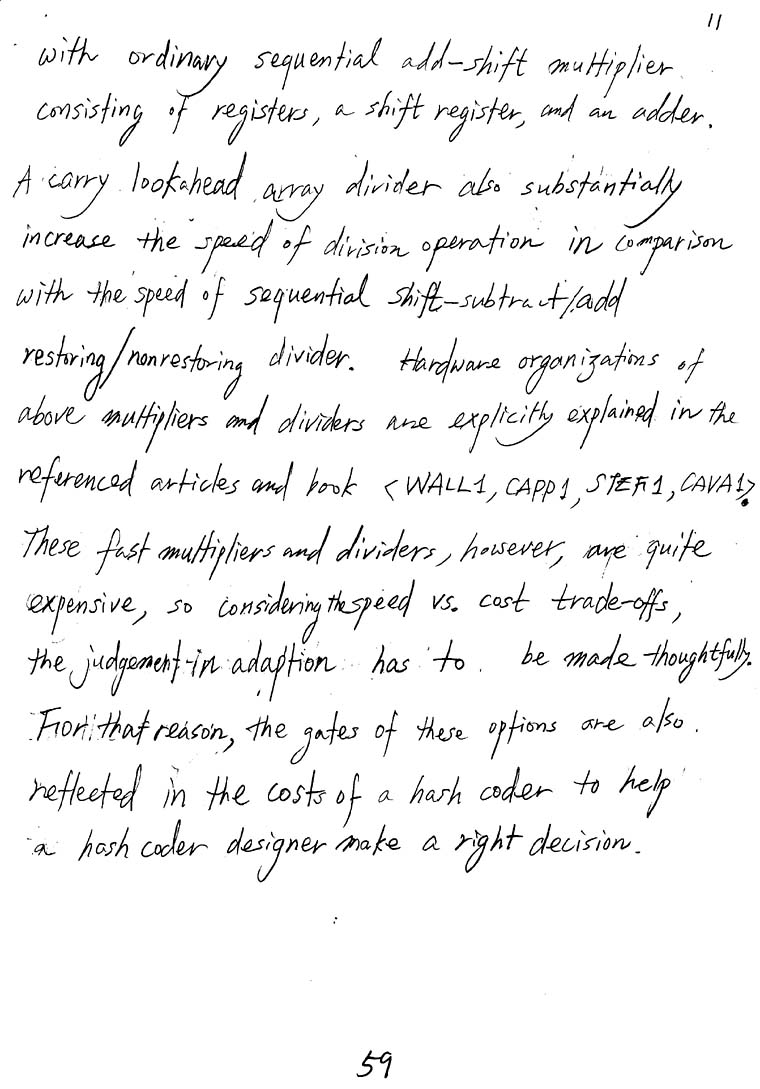 11
with ordinary sequential add-shift multiplier
consisting of registers, a shift register, and an adder.
A carry lookahead array divider also substantially
increase the speed of division operation in comparison
with the speed of sequential shift-subtract/add
restoring/nonrestoring divider. Hardware organizations of
above multipliers and dividers are explicitly explained in the
referenced articles and book <WALL1, CAPP1, STEF1, CAVA1>.
These fast multipliers and dividers, however, are quite
expensive, so considering the speed vs. cost trade-offs,
the judgement in adaption has to be made thoughtfully.
that reason, the gates of these options are also
reflected in the costs of a hash coder to help
a hash coder designer make a right decision.
59